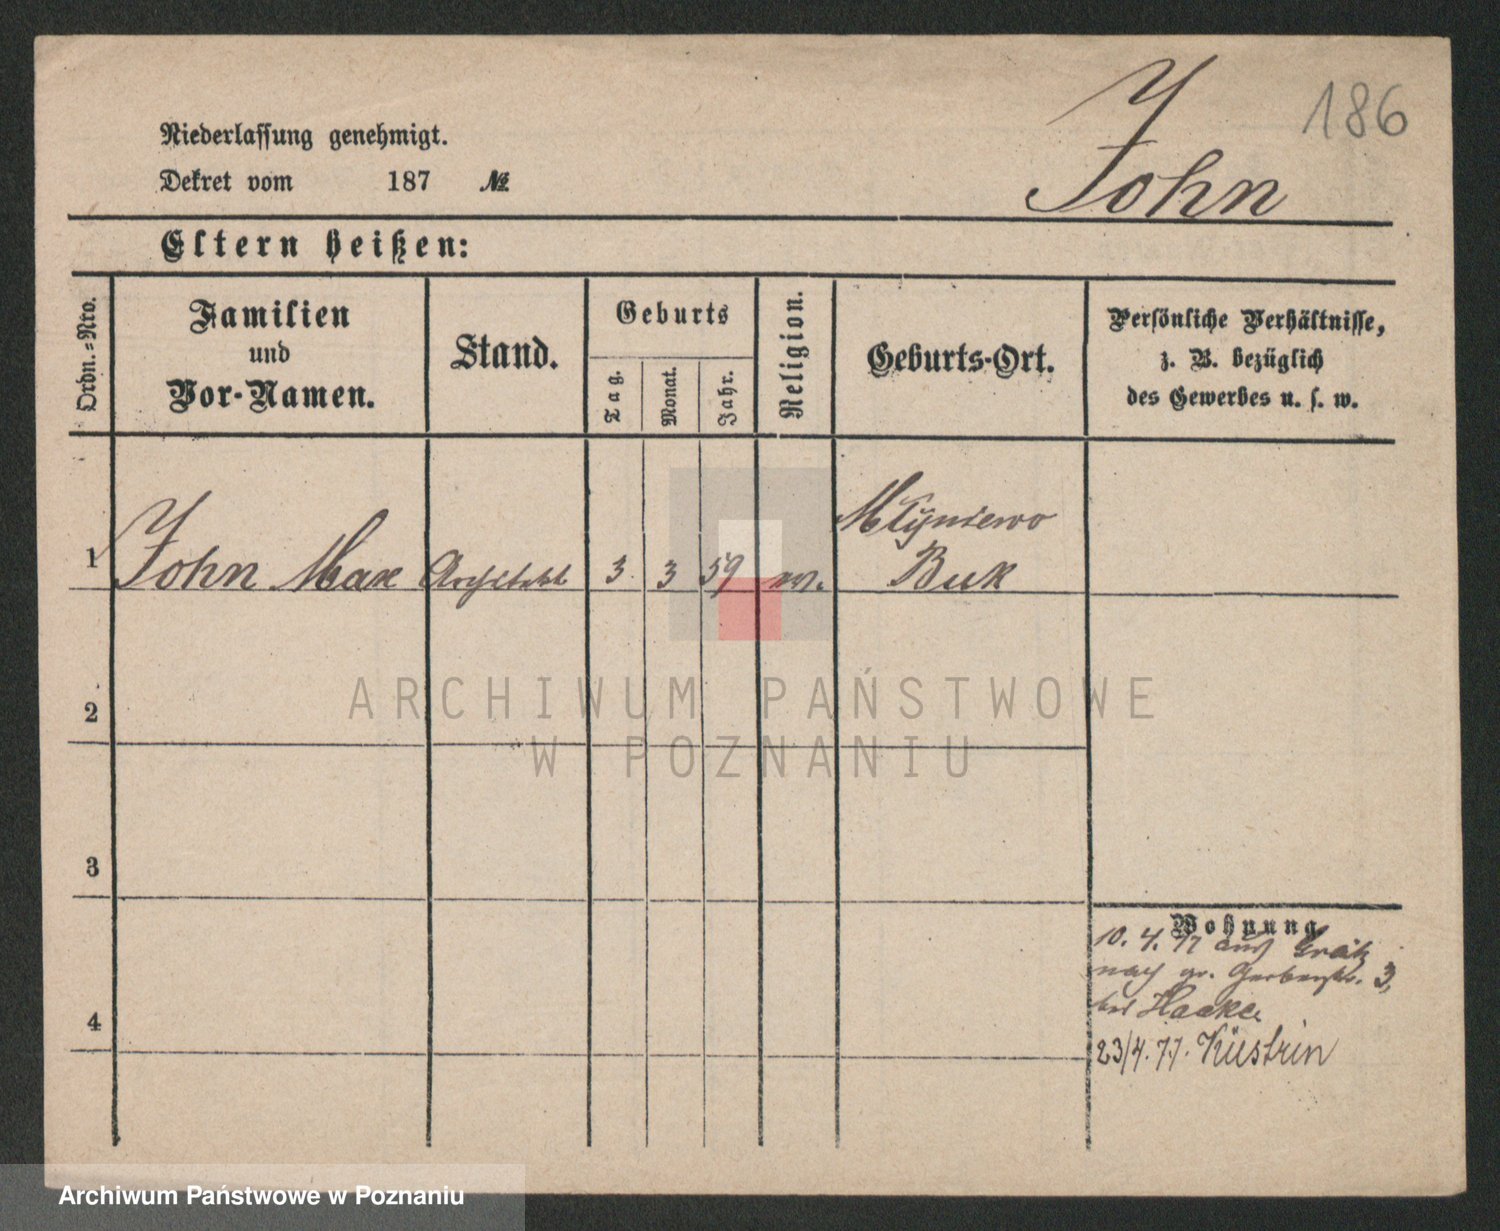 186
John
Niederlassung genehmigt.
Dekret vom 187 №
Eltern heißen:
Ordn.=Nro.
Familien
und
Vor-Namen.
Stand.
Geburts
Tag.
Monat.
Jahr.
Religion.
Geburts-Ort.
Persönliche Verhältnisse,
z. B. bezüglich
des Gewerbes u. s. w.
1 John Max Architekt 3. 3 59 ev. Młyniewo
Buk
2
3
4
Wohnung
10. 4. 77 aus Grätz
nach gr. Gerberstr. 3,
bei Haake
23/4. 77. Küstrin
ARCHIWUM PAŃSTWOWE
W POZNANIU
Archiwum Państwowe w Poznaniu